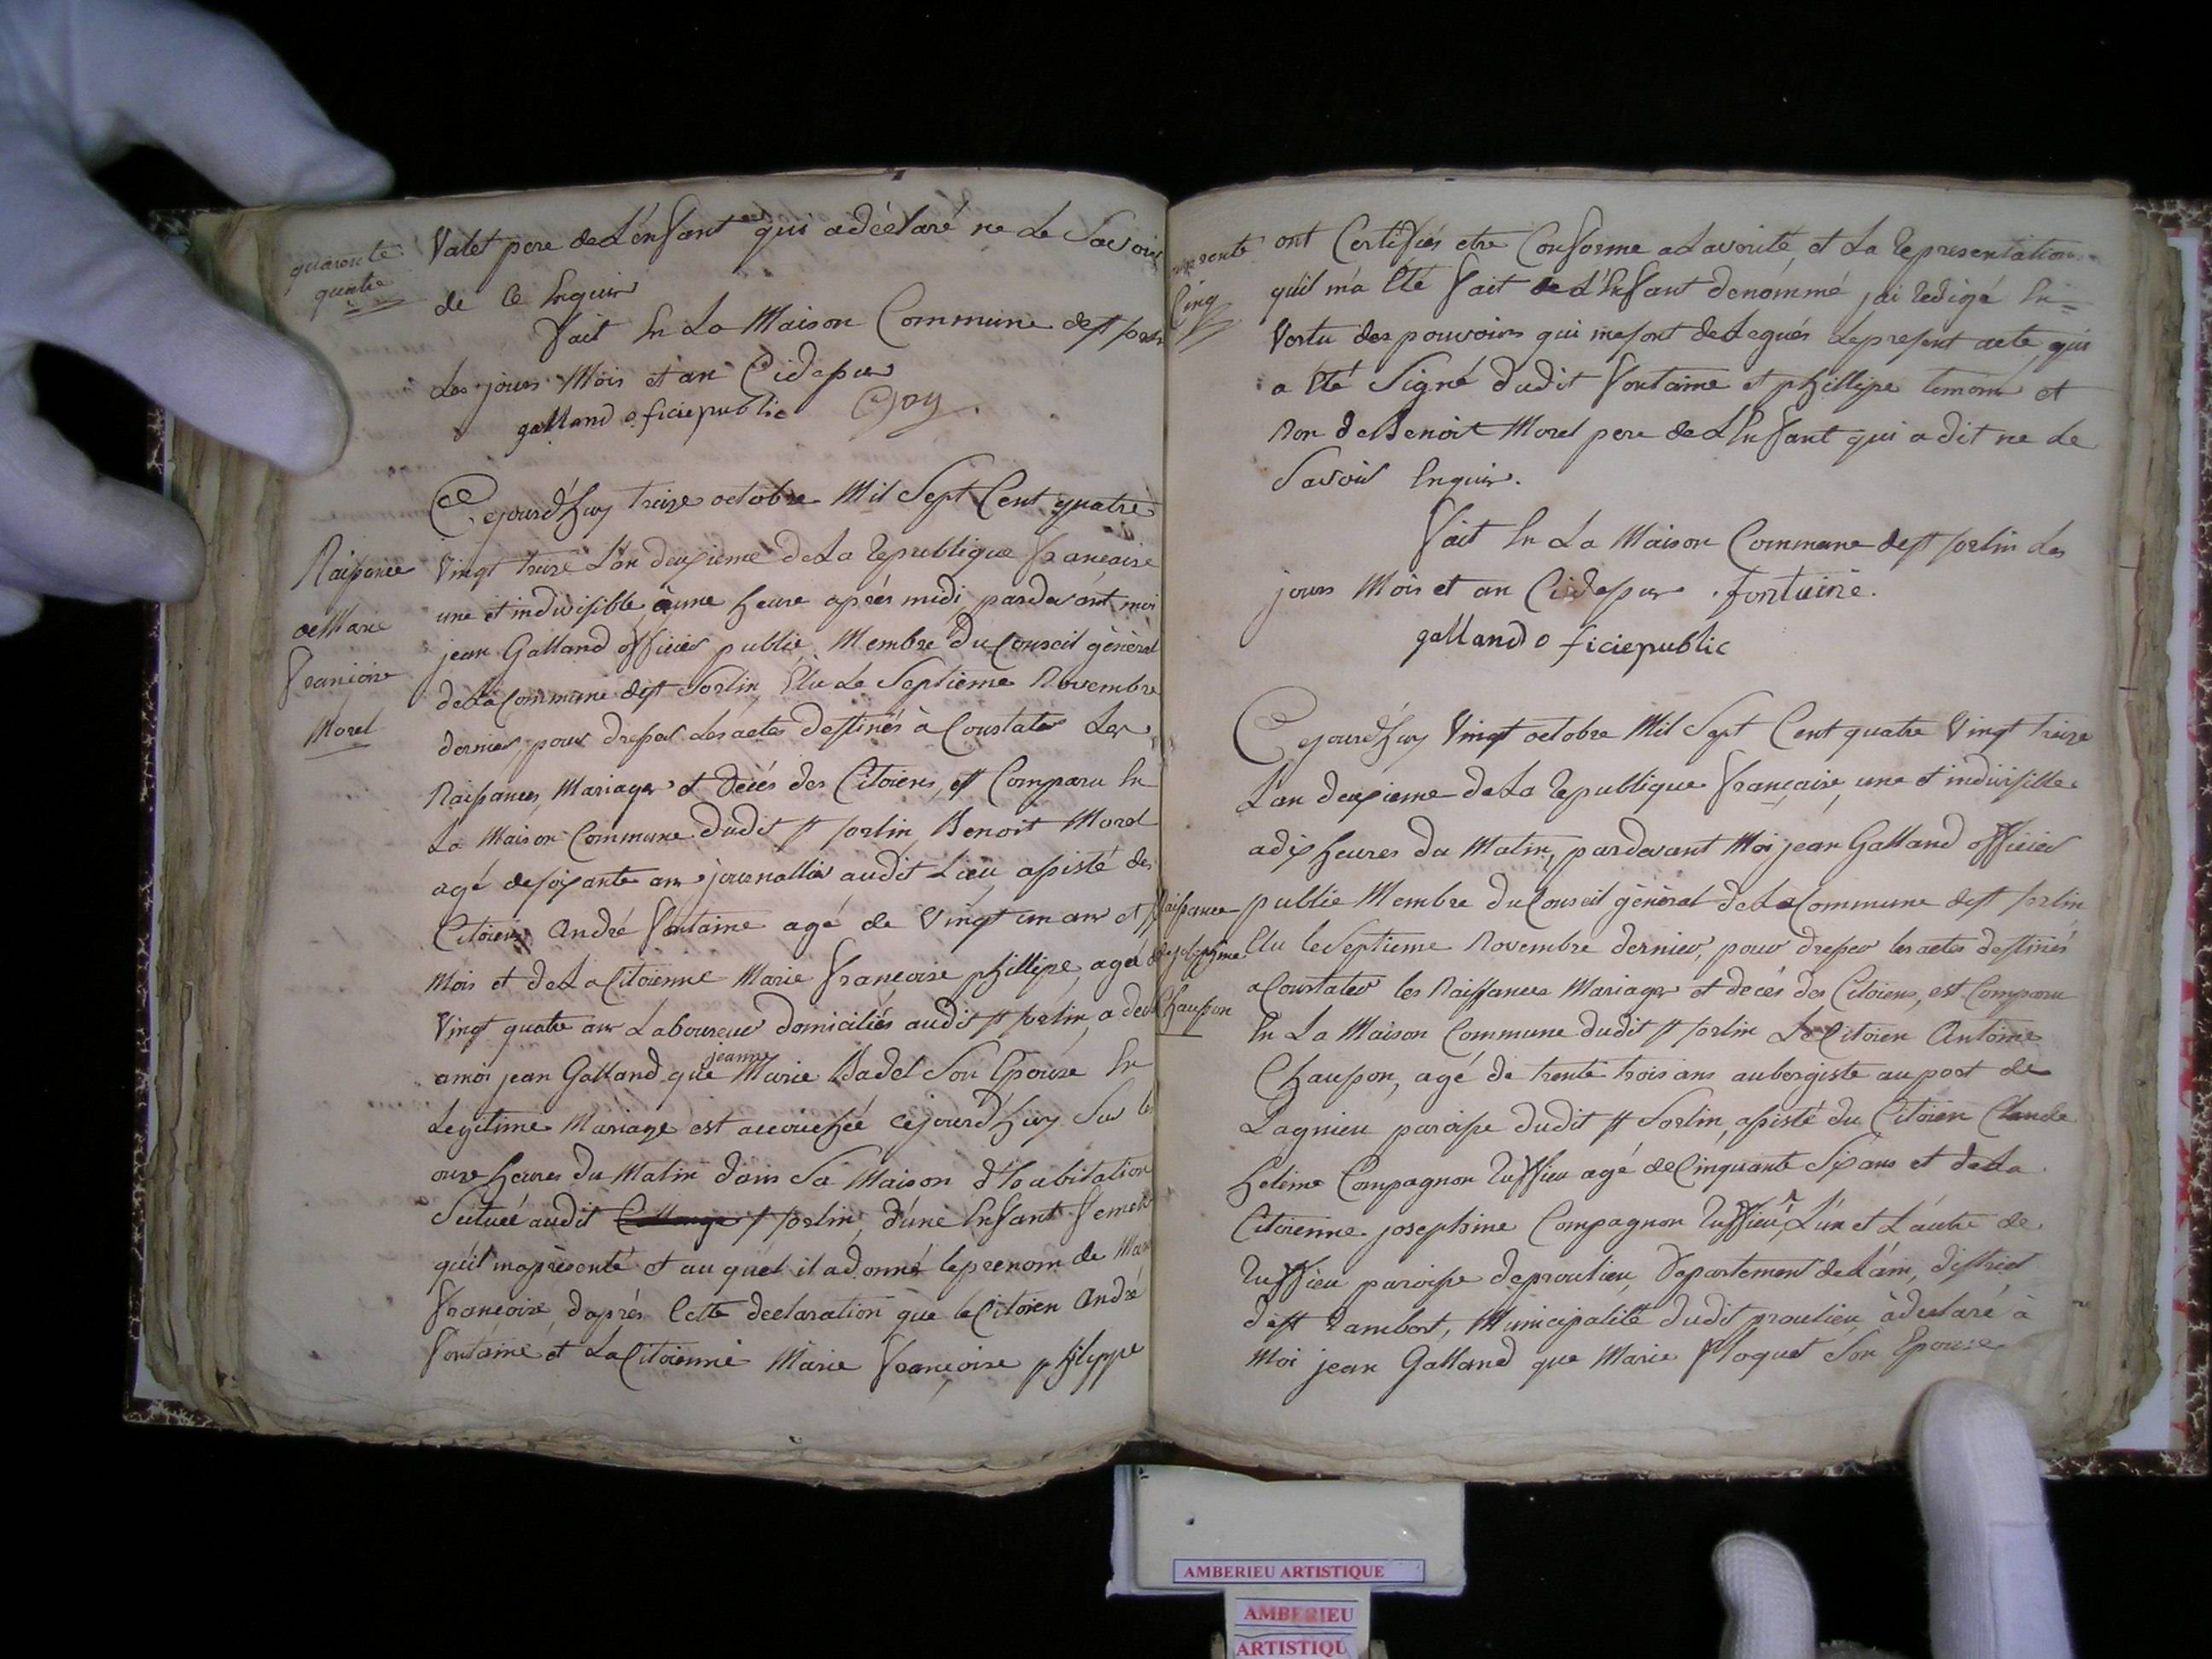 quarente
quatre
Valet pere de L'enfant qui a déclaré ne Le Savoir
de Ce Enquir
Fait En La Maison Commune de st sorlin
Les jours Mois et an Cidessus
galland o ficiepublic Goy
Naissance
de Marie
Francoise
Morel
Cejourd'huy treize octobre Mil Sept Cent quatre
Vingt treize L'an deuxieme de La republique francaise
une et indivisible, à une heure aprés midi, pardevant moi
jean Galland officier public, Membre du Conseil gènèral
de La Commune de st Sorlin Elu Le Septieme Novembre
dernier, pour dresser Les actes destinés à Constater Les
Naissances, Mariages et Décés des Citoiens, est Comparu En
La Maison Commune dudit st sorlin, Benoit Morel
agé de soixante ans journallier audit Lieu, assisté des
Citoiens André Fontaine agé de Vingt un ans et
Mois et de La Citoienne Marie francoise phillipe, agé de
Vingt quatre ans Laboureur domiciliés audit st sorlin, a declaré
a moi jean Galland que jeanne Marie Badel Son Epouse En
Legitime Mariage est accouchée cejourd'huy Sur les
onze heures du Matin dans Sa Maison d'habitation
Scituée audit st sorlin, d'une Enfant femelle
qu'il m'a présenté et au quel il a donné le prenom de Marie
francoise, d'aprés Cette declaration que le Citoien André
Fontaine et La Citoienne Marie Françoise philippe
quarente
Cinq
ont Certifiés etre Conforme a La vorité, et La representation
qu'il m'a Eté fait de L'Enfant denommé, j'ai redigé En
Vertu des pouvoirs qui me sont delegués Le present acte, qui
a Eté Signé dudit Fontaine et phillipe temoins et
Non de Benoit Morel pere de L'Enfant qui a dit ne Le
Savoir Enquir.
Fait En La Maison Commune de st sorlin Les
jours Mois et an Cidessus. fontaine.
galland o ficiepublic
Naissance
de josephine
Chausson
Cejourd'huy Vingt octobre Mil Sept Cent quatre Vingt treize
L'an deuxieme de La republique française, une et indivisible
a dix heures du Matin, pardevant Moi jean Galland officier
public Membre du Conseil gènèral de La Commune de st sorlin
Elu le Septieme Novembre dernier, pour dresser les actes destinés
a Constater les Naissances Mariages et decés des Citoiens, est Comparu
En La Maison Commune dudit st sorlin Le Citoien Antoine
Chausson, agé de trente trois ans aubergiste au port de
Lagnieu paroisse dudit st Sorlin, assisté du Citoien Claude
helème Compagnon ruffieu agé de Cinquante Six ans et de La
Citoienne josephine Compagnon Ruffieu, L'un et L'autre de
Ruffieu paroisse de proulieu, Departement de L'ain, district
de st rambert, Municipalité dudit proulieu, à declaré à
Moi jean Galland que Marie Ploquet Son Epouse
AMBERIEU ARTISTIQUE
AMBERIEU
ARTISTIQU